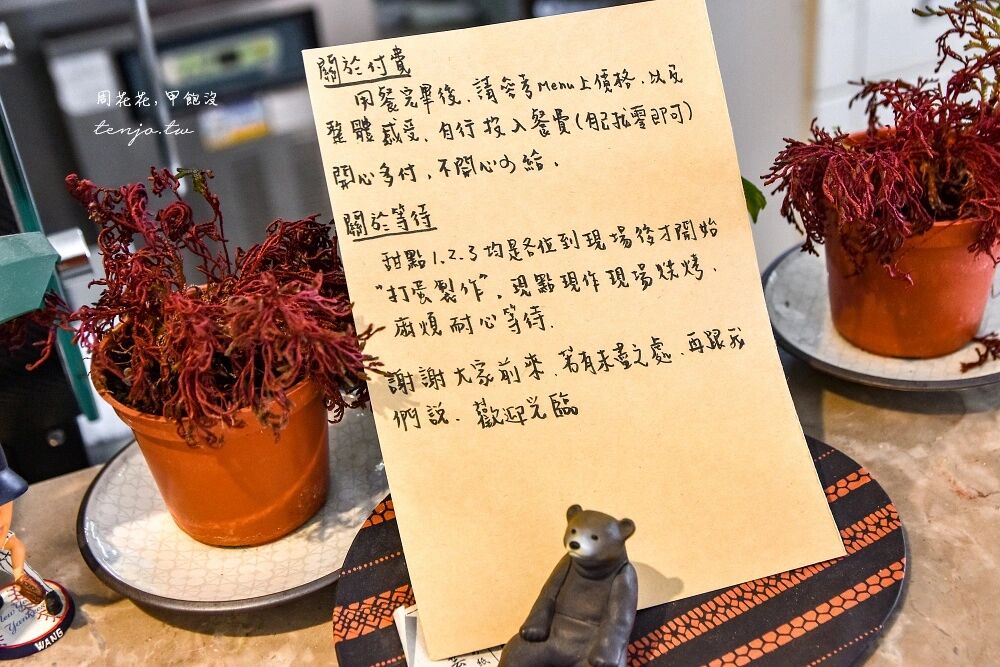 周花花,甲飽沒
tenjo.tw
關於付費
用餐完畢後、請參考Menu上價格、以及
整體感受、自行投入餐費(自己找零即可)
開心多付、不開心少給、
關於等待
甜點1.2.3均是各位到現場後才開始
"打蛋製作"、現點現作現場烘烤、
麻煩耐心等待.
謝謝大家前來、若有未盡之處、再跟我
們說. 歡迎光臨
New York
Yankees
WANG